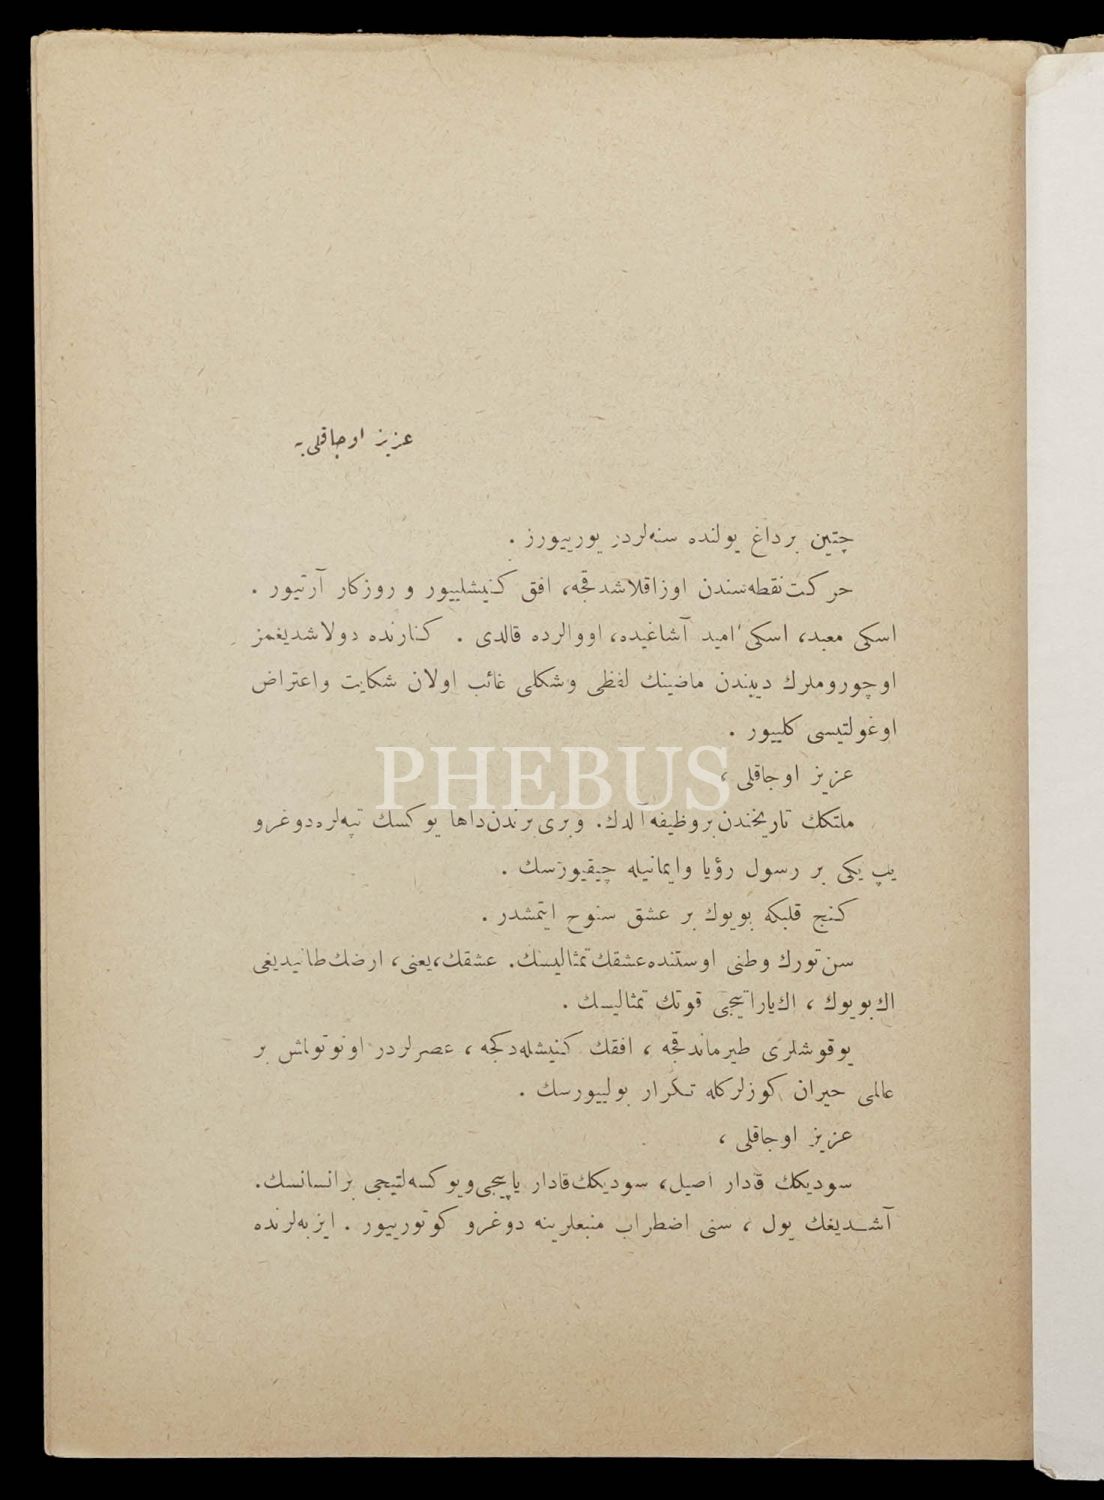 عزیز اوجاقلی‌یه
چتین بر داغ یولنده سنه‌لردر یورییورز .
حرکت نقطه‌سندن اوزاقلاشدقجه، افق کنیشلییور و روزکار آرتیور .
اسکی معبد، اسکی امید آشاغیده، اووالرده قالدی . کنارنده دولاشدیغمز
اوچوروملرك دیبندن ماضینك لفظی وشکلی غائب اولان شکایت واعتراض
اوغولتیسی کلییور .
PHEBUS
عزیز اوجاقلی ،
ملتکك تاریخندن بر وظیفه آلدك. وبری برندن داها یوکسك تپه‌لره دوغرو
یپ یکی بر رسول رؤیا وایمانیله چیقیورسك .
کنج قلبکه بویوك بر عشق سنوح ایتمشدر .
سن تورك وطنی اوستنده عشقك تمثالیسك. عشقك، یعنی، ارضك طانیدیغی
اك بویوك ، اك یاراتیجی قوتك تمثالیسك .
یوقوشلری طیرماندقجه ، افقك کنیشله‌دکجه ، عصرلردر اونوتولمش بر
عالمی حیران کوزلرکله تکرار بولییورسك .
عزیز اوجاقلی ،
سودیکك قدار اصیل، سودیکك قادار یاپیجی ویوکسه‌لتیجی بر انسانسك.
آشدیغك یول ، سنی اضطراب منبعلرینه دوغرو کوتورییور . ایزبه‌لرنده